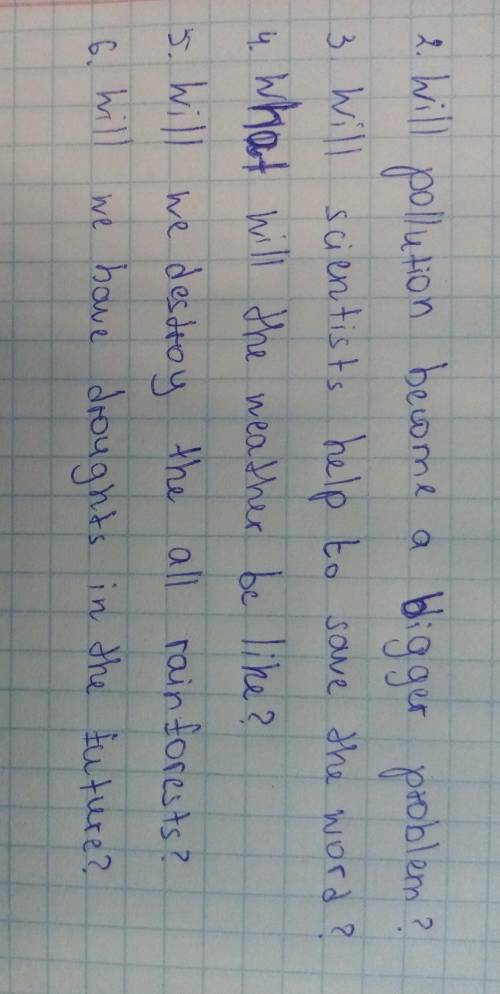 2. Will pollution become a bigger problem?
3. Will scientists help to save the word?
4. What will the weather be like?
5. Will we destroy the all rainforests?
6. Will we have droughts in the future?